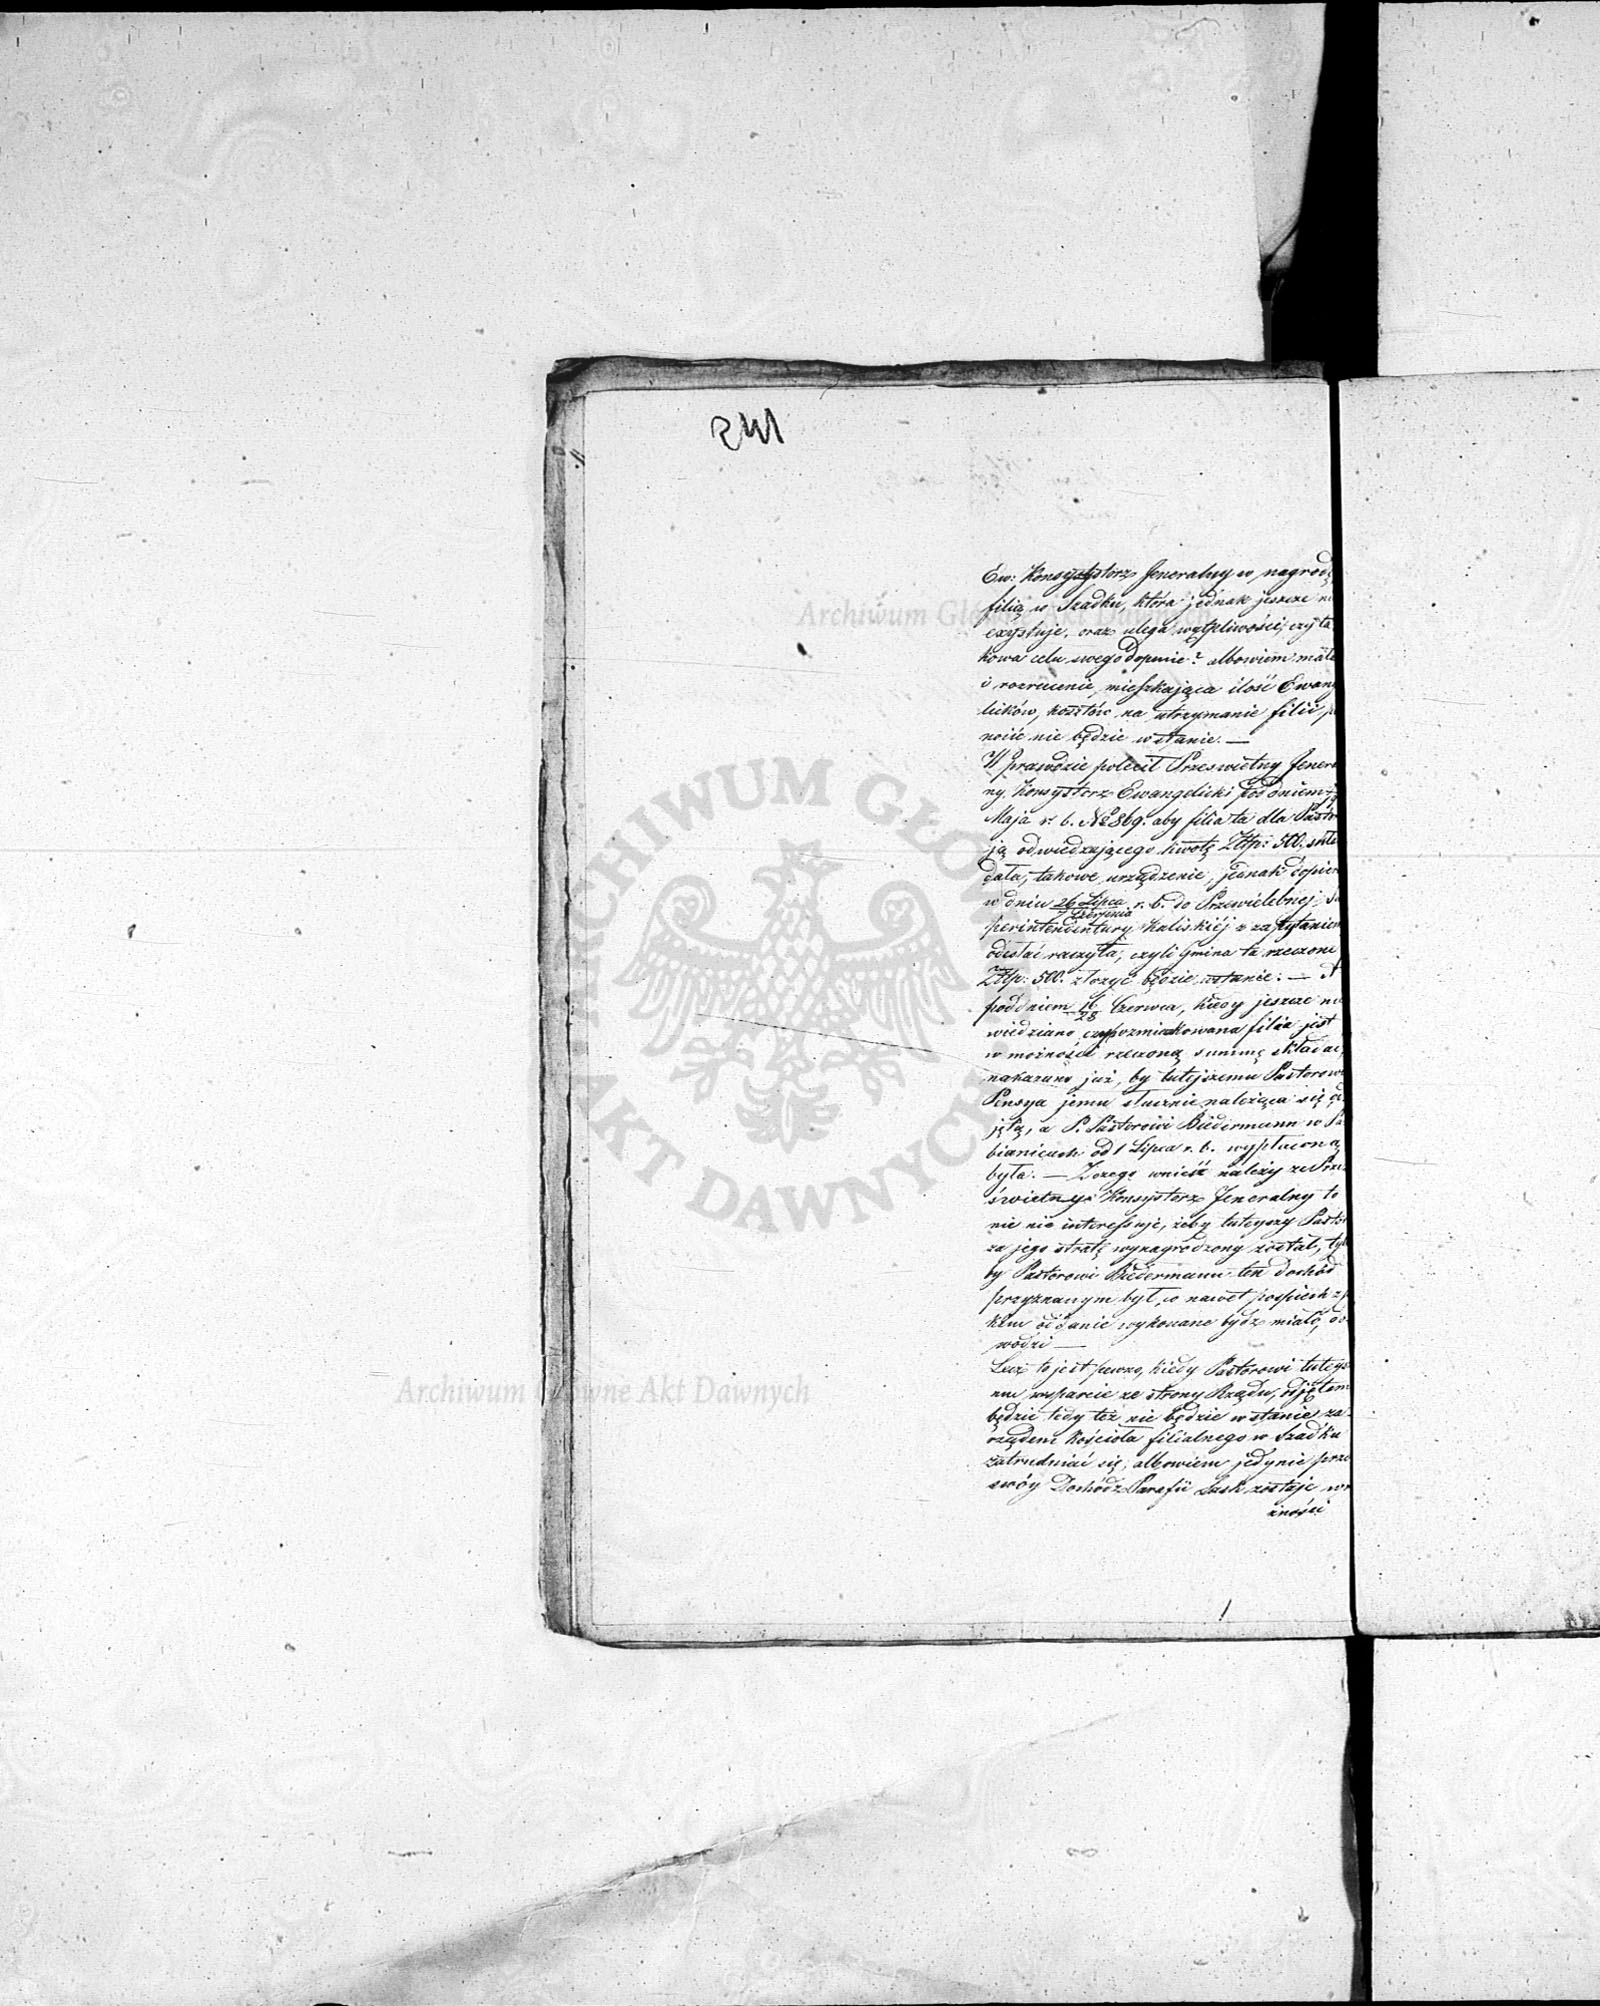 Ew: Konsystorz Jeneralny w nagrodę
filią w Szadku, która jednak jeszcze ni
exystuje, oraz ulega wątpliwości, czy ta
kowa celu swego dopnie? albowiem mała
i rozrucenie mieszkająca ilość Ewang
lików, kosztów na utrzymanie filii p
nosić nie będzie wstanie. —
W prawdzie polecił Prześwietny Jener
ny Konsystorz Ewangelicki pod dniem
Maja r. b. No 869. aby filia ta dla Pasto
ją odwiedzającego kwotę Złtp: 500. skła
dała, takowe urządzenie, jednak dopier
w dniu 26 Lipca / 7 Sierpnia r. b. do Przewielebnej Su
perintendentury Kaliskiéj z zapytaniem
odesłać raczyła, czyli Gmina ta rzeczone
Złtp: 500. złożyć będzie wstanie: — A
pod dniem 16/28 Czerwca, kiedy jeszcze ni
wiedziano, czy wzmiankowana filia jest
w możności rzeczoną summę składać,
nakazano już, by tutejszemu Pastorowi
Pensya jemu słusznie należąca się od
jętą, a P. Pastorowi Biedermann w Pa
bianicach od 1 Lipca r. b. wypłaconą
była. — Z czego wnieść należy ze Prze
świetny Konsystorz Jeneralny to
nie nie interessuje, żeby tuteyszy Pasto
za jego stratę wynagrodzony został, tyl
by Pastorowi Biedermann ten dochód
przyznanym był, co nawet pospiech z j
kim oddanie wykonane bydź miało, do
wodzi —
Lecz to jest pewno, kiedy Pastorowi tuteys
mu wsparcie ze strony Rządu, odjętem
będzie tedy też nie będzie wstanie za
rządem kościoła filialnego w Szadku
zatrudniać się, albowiem jedynie prze
swóy Dochód z Parafii Łask zostaje w
żności
145
Archiwum Główne Akt Dawnych
Archiwum Główne Akt Dawnych
ARCHIWUM GŁÓWNE AKT DAWNYCH